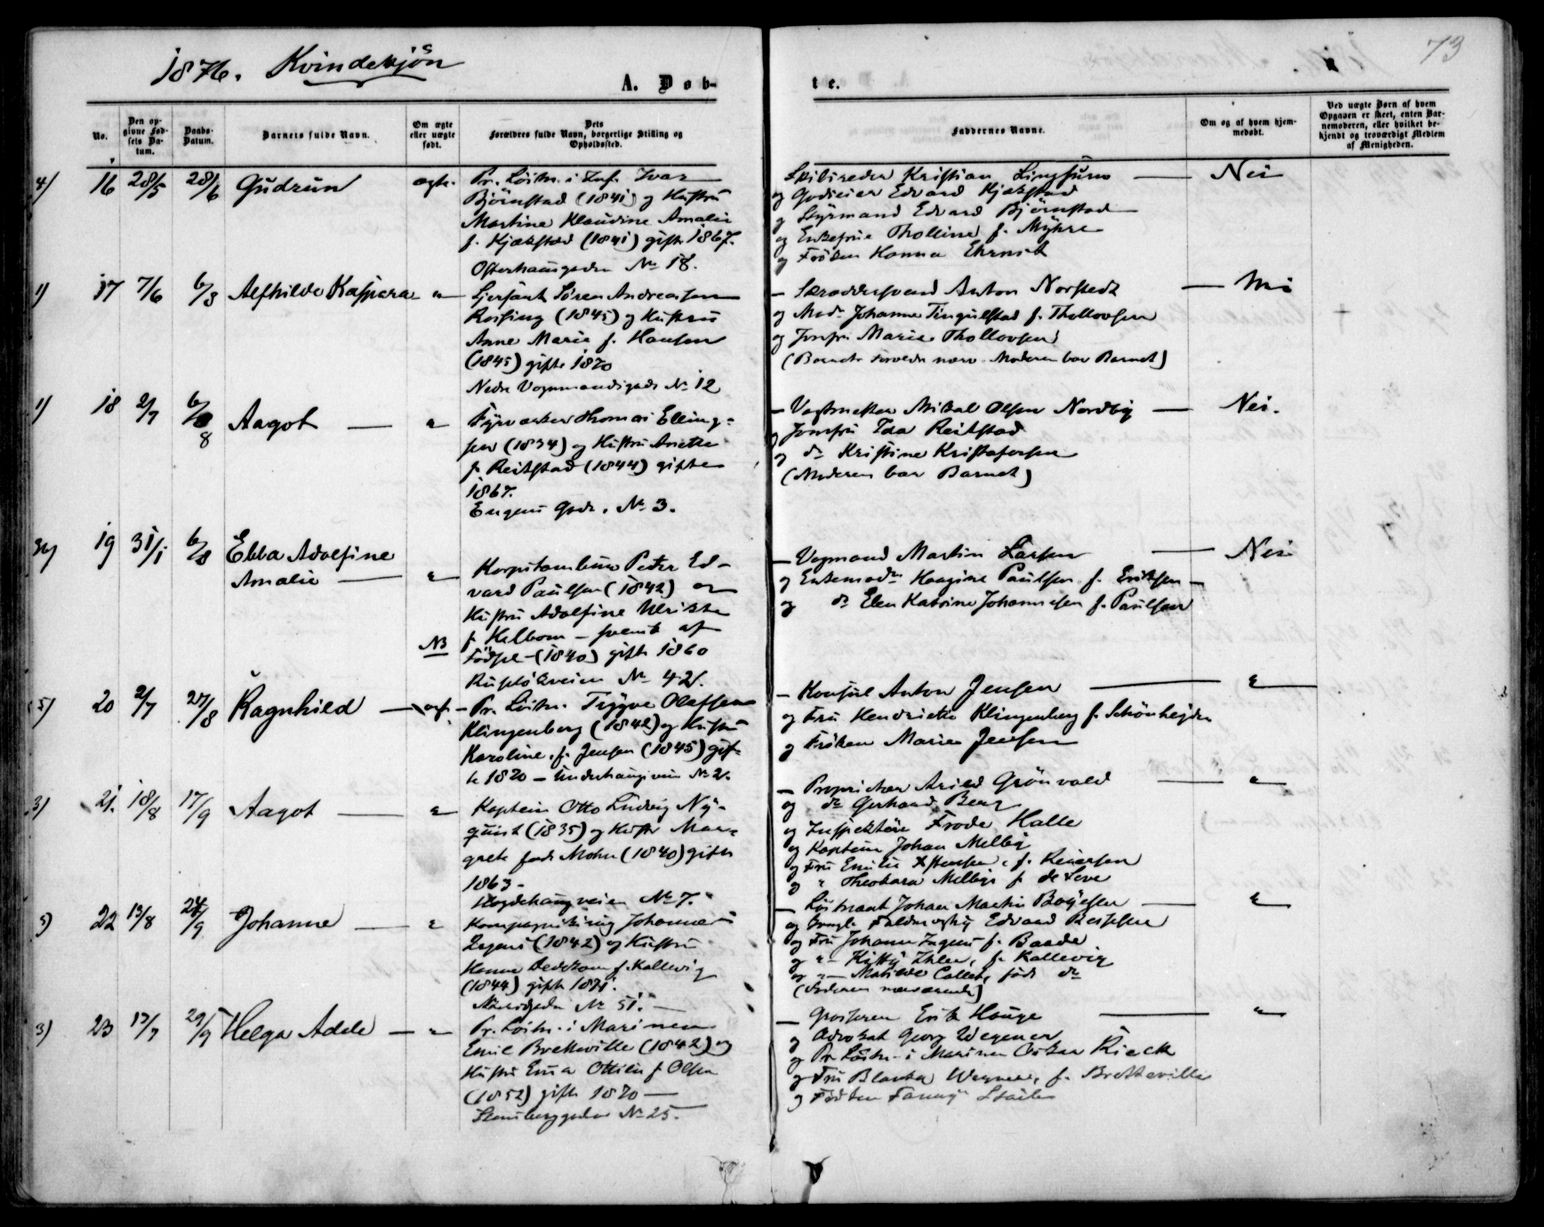 1876. Kvindekjön
73
A. Døb-
te.
No.
Den op-
givne Fød-
sels Da-
tum.
Daabs-
Datum.
Barnets fulde Navn.
Om ægte
eller uægte
født.
Dets
Forældres fulde Navn, borgerlige Stilling og
Opholdssted.
Faddernes Navne.
Om og af hvem hjem-
medøbt.
Ved uægte Børn af hvem
Opgaven er skeet, enten Bar-
nemoderen, eller hvilket be-
kjendt og troværdigt Medlem
af Menigheden.
4) 16 28/5 28/6 Gudrun ægte. Pr. Löitn. i Inf. Ivar
Bjørnstad (1841) og Hustru
Martine Klaudine Amalie
f. Kjækstad (1841) gift 1867.
Osterhausgaden No 18.
Skibsreder Kristian
og Godseier Edvard Kjækstad
og Styrmand Edvard Bjørnstad
og Enkefrue Tholline f. Myhre
og Frøken Hanna
Nei
1) 17 7/6 6/8 Alfhilde Kaspara " Serjeant Sören Andreassen
(1845) og Hustru
Anne Marie f. Hansen
(1845) gift 1870
Nedre Vognmandsgade No 12
Skræddersvend Anton Norstedt
og Mad. Johanne Tingulstad f. Thollovsen
og Jomfr. Marie Thollovsen
(Barnets Forældre nærv. Moderen bar Barnet)
1) 18 2/7 6/8 Aagot " Fyrværker Thomas Elling-
sen (1834) og Hustru Anette
f. Reitstad (1844) gifte
1867.
Eugenis Gade. No 3.
Vagtmester Mikal Olsen Nordby
og Jomfru Ida Reitstad
og do Kristine Kristofersen
(Moderen bar Barnet)
Nei.
19 31/1 6/8 Ebba Adolfine
Amalie " Peter Ed-
vard Paulsen (1842) og
Hustru Adolfine Ulrikke
f. Kilbom - svensk af
Födsel - (1840) gift 1860
NB
No 42.
Vognmand Martin Larsen
og Enkemad. Haagine Paulsen f. Eriksen
og do Elen Katrine Johannesen f. Paulsen
Nei
5) 20 2/7 27/8 Ragnhild ægt. Pr. Löitn. Tryggve Olafsen
Klingenberg (1842) og Hustru
Karoline f. Jensen (1845) gif-
te 1870 - Underhaugsveien No 2.
Konsul Anton Jensen
og Fru Hendriette Klingenberg f. Schönheyder
og Frøken Marie Jensen
"
3) 21. 18/8 17/9 Aagot " Kaptein Otto Ludvig Ny-
quist (1835) og Hustr. Mar-
grete födt Mohn (1840) gift
1863 -
No 7.
Proprietær Arild Grönvold
og do Gerhard Berg
og Inspektör Frode Halle
og Kaptein Johan Melbÿ
og Fru Emilie
og " Theobara Melbye f. de Seve
"
5) 22 13/8 24/9 Johanne " Johannes
(1842) og Hustru
Hanna f. Kallevig
(1844) gift 1871.
No 51.
Löitnant Johan Martin Boyesen
og Edvard
og Fru Johanne f. Baade
og " Kitty Ihlen, f. Kallevig
og " Matilde Collett, födt do
(Faderen nærværende)
"
3) 23 17/7 29/9 Helga Adele " Pr. Löitn. i Marinen
Emil Bretteville (1842) og
Hustru Ottilie f. Olsen
(1852) gift 1870
No 25.
Grosserer Erik Hauge
og Advokat Georg Wegener
og Pr. Löitn. i Marinen Oskar Kieck
og Fru Blanka Wegener, f. Bretteville
og Frøken Fanny
"